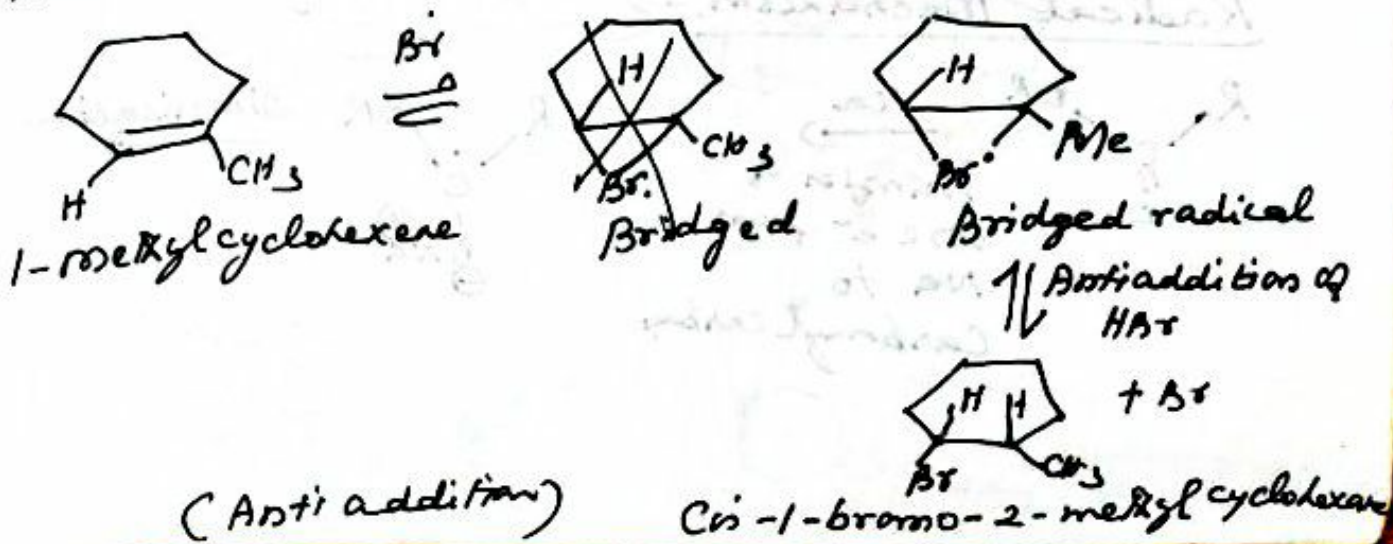 Br·
H
CH3
1-methylcyclohexene
H
CH3
Br.
Bridged
H
Me
Br·
Bridged radical
Antiaddition of
HBr
H H
Br
CH3
+ Br
(Anti addition)
Cis-1-bromo-2-methyl cyclohexane